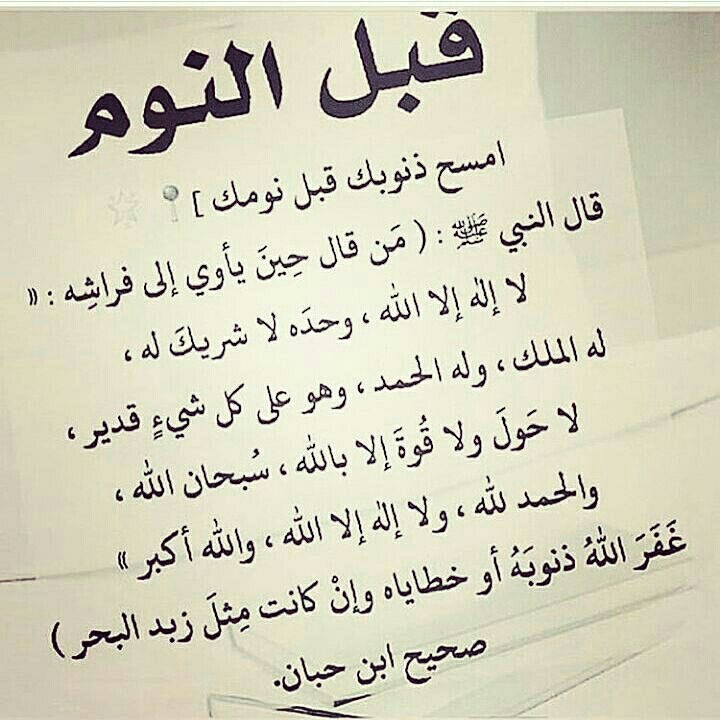 قبل النوم
امسح ذنوبك قبل نومك ]
قال النبي ﷺ : ( مَن قال حِينَ يأوي إلى فراشِه : «
لا إلٰه إلا الله ، وحدَه لا شريكَ له ،
له الملك ، وله الحمد ، وهو على كل شيءٍ قدير ،
لا حَولَ ولا قُوةَ إلا بالله ، سُبحان الله ،
والحمد لله ، ولا إلٰه إلا الله ، والله أكبر »
غَفَرَ اللهُ ذنوبَهُ أو خطاياه وإنْ كانت مِثلَ زبد البحر )
صحيح ابن حبان.